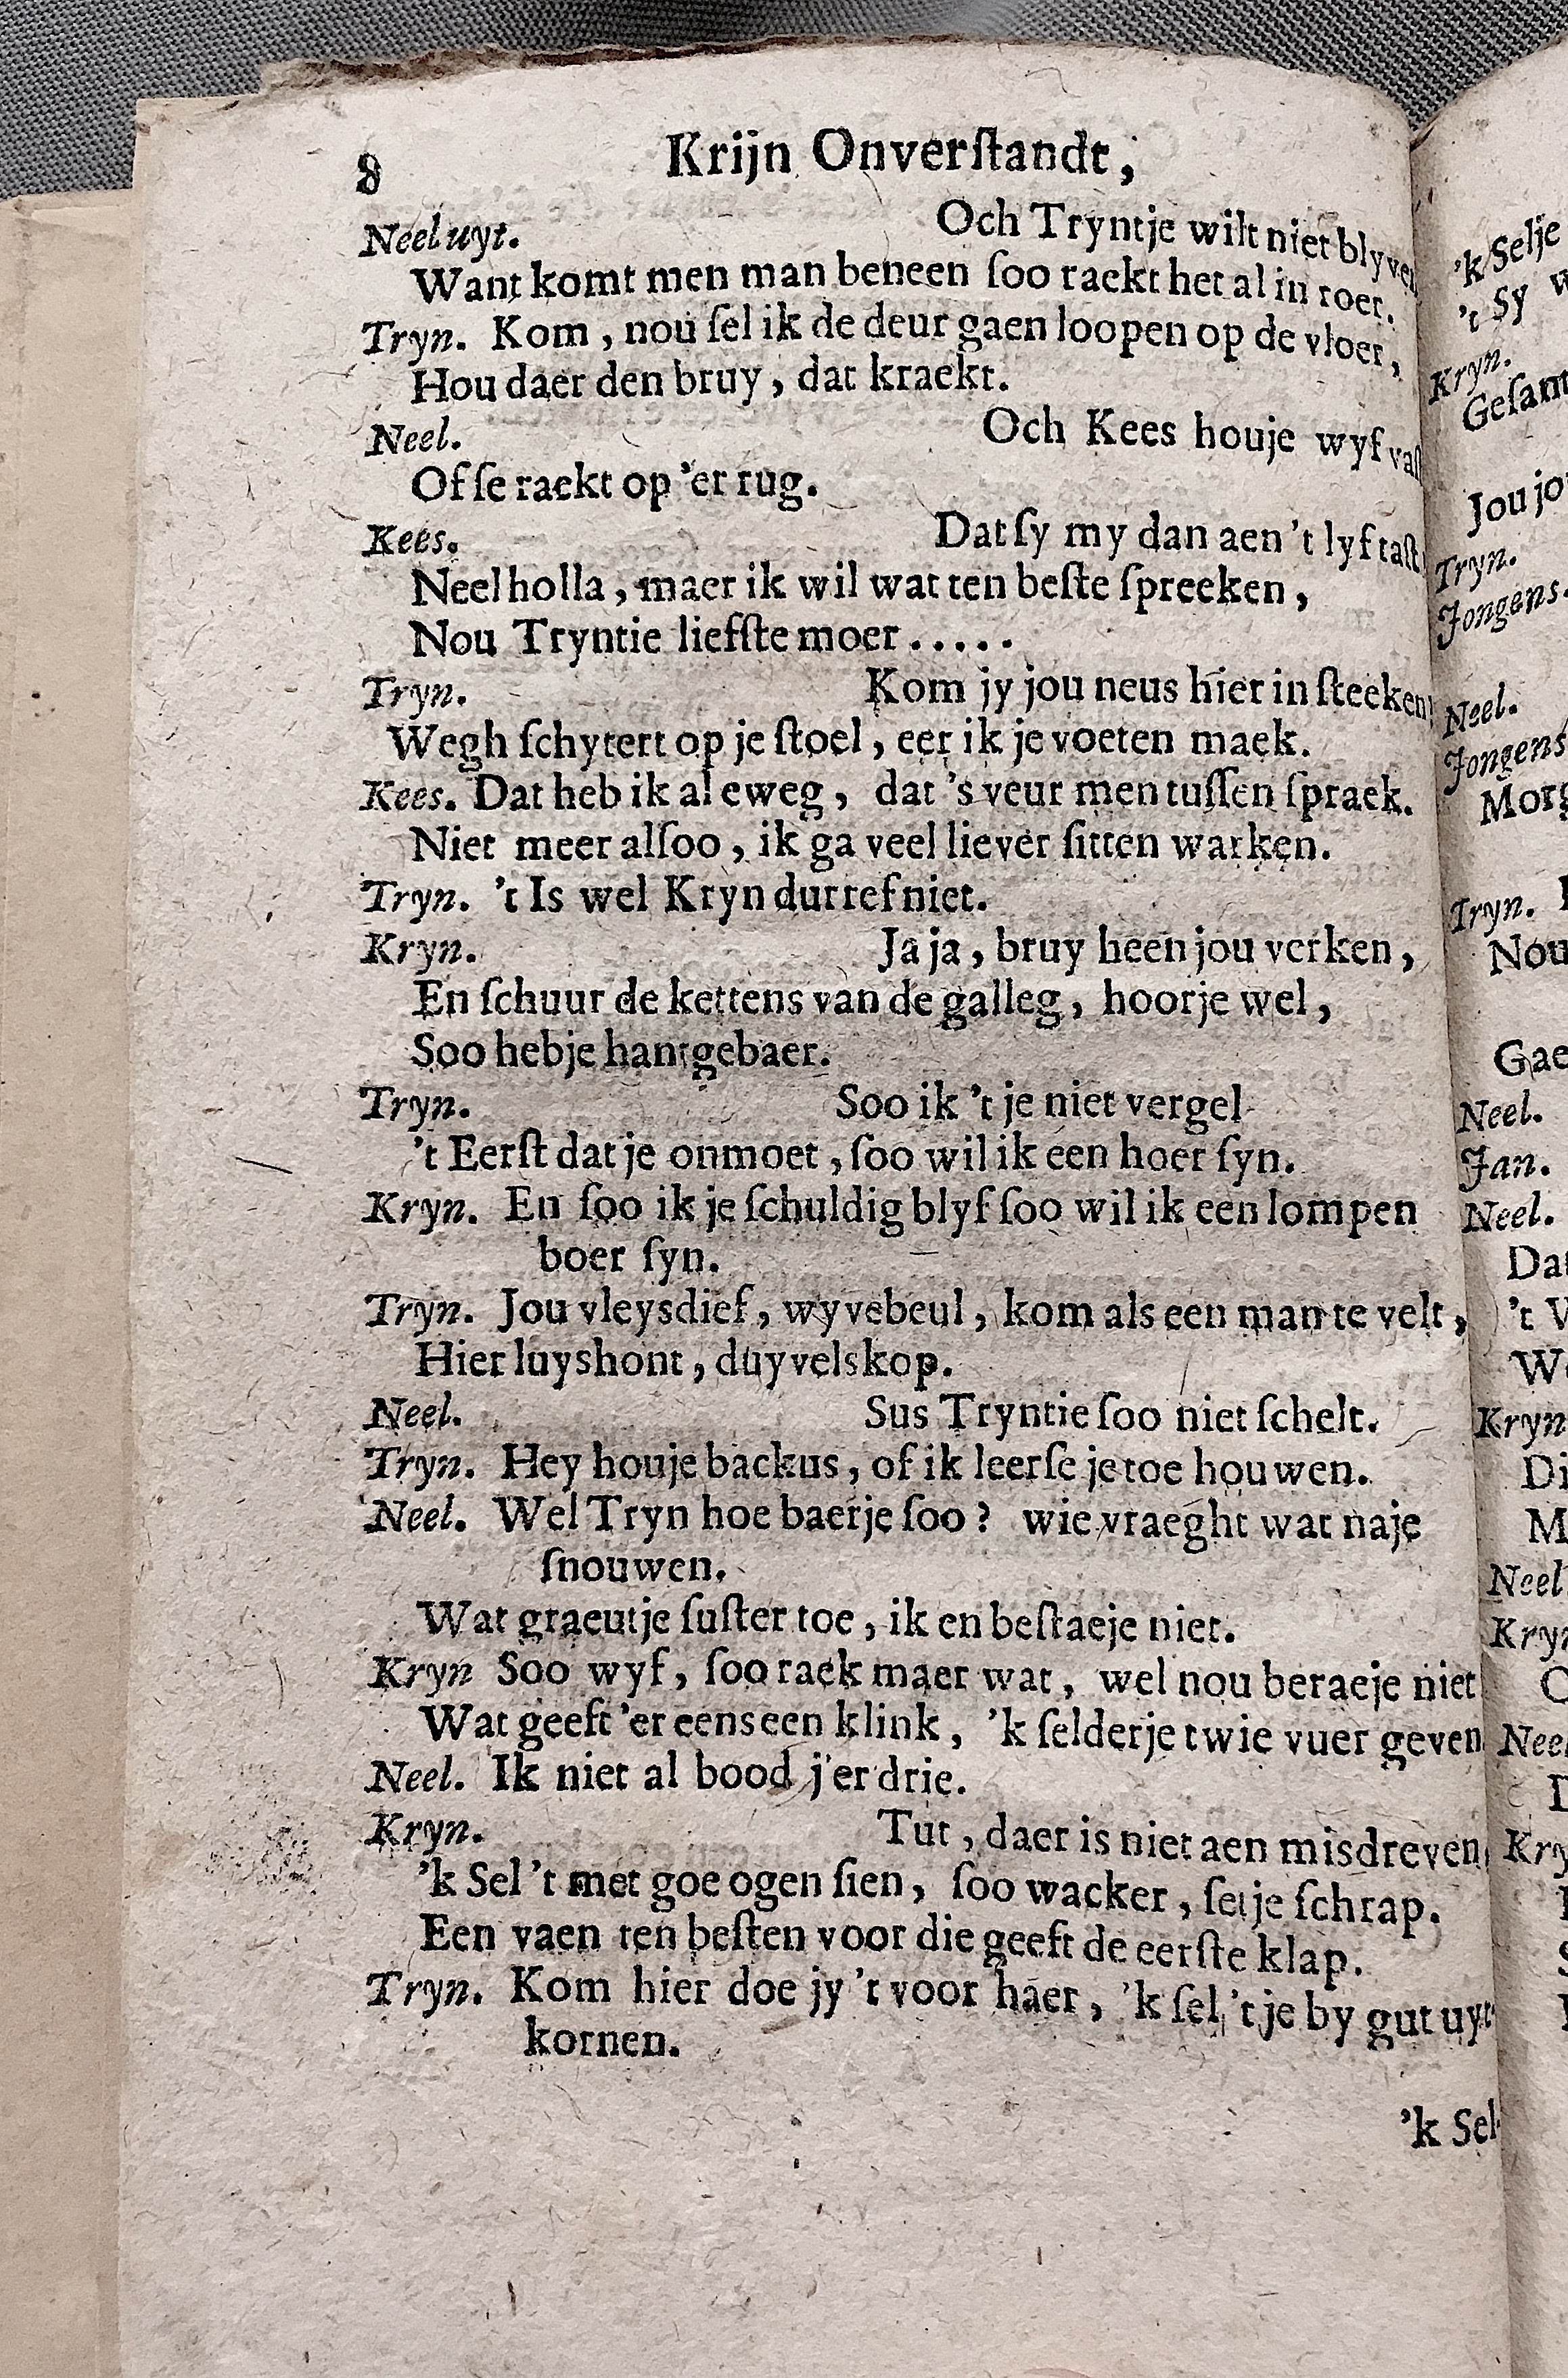 8 Krijn Onverſtandt,
Neel uyt. Och Tryntje wilt niet blyven
Want komt men man beneen ſoo raekt het al in roer.
Tryn. Kom, nou ſel ik de deur gaen loopen op de vloer,
Hou daer den bruy, dat kraekt.
Neel. Och Kees houje wyf vaſt
Of ſe raekt op 'er rug.
Kees. Dat ſy my dan aen 't lyf taſt
Neel holla, maer ik wil wat ten beſte ſpreeken,
Nou Tryntie liefſte moer.....
Tryn. Kom jy jou neus hier in ſteeken
Wegh ſchytert op je ſtoel, eer ik je voeten maek.
Kees. Dat heb ik al eweg, dat 's veur men tuſſen ſpraek.
Niet meer alſoo, ik ga veel liever ſitten warken.
Tryn. 't Is wel Kryn durref niet.
Kryn. Ja ja, bruy heen jou verken,
En ſchuur de kettens van de galleg, hoorje wel,
Soo hebje hantgebaer.
Tryn. Soo ik 't je niet vergel
't Eerſt dat je onmoet, ſoo wil ik een hoer ſyn.
Kryn. En ſoo ik je ſchuldig blyf ſoo wil ik een lompen
boer ſyn.
Tryn. Jou vleysdief, wyvebeul, kom als een man te velt,
Hier luyshont, duyvelskop.
Neel. Sus Tryntie ſoo niet ſchelt.
Tryn. Hey houje backus, of ik leerſe je toe houwen.
Neel. Wel Tryn hoe baerje ſoo? wie vraeght wat naje
ſnouwen.
Wat graeutje ſuſter toe, ik en beſtaeje niet.
Kryn Soo wyf, ſoo raek maer wat, wel nou beraeje niet
Wat geeft 'er eens een klink, 'k ſelderje twie vuer geven
Neel. Ik niet al bood j'er drie.
Kryn. Tut, daer is niet aen misdreven
'k Sel 't met goe ogen ſien, ſoo wacker, ſetje ſchrap.
Een vaen ten beſten voor die geeft de eerſte klap.
Tryn. Kom hier doe jy 't voor haer, 'k ſel 't je by gut uyt
kornen.
'k Sel
'k Selje
't Sy
Kryn.
Geſam
Jou jo
Tryn.
Jongens.
Neel.
Jongens
Morg
Tryn.
Nou
Gae
Neel.
Jan.
Neel.
Dat
't V
W
Kryn
Di
M
Neel
Kryn
Neel
Kry